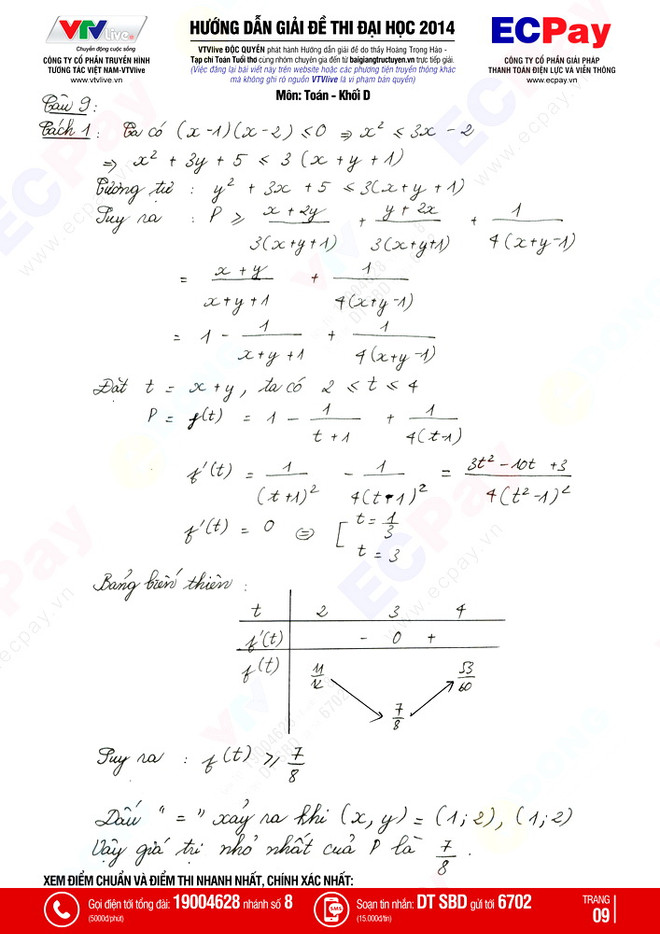 VTVLive
Chuyển động cuộc sống
CÔNG TY CỔ PHẦN TRUYỀN HÌNH
TƯƠNG TÁC VIỆT NAM-VTVlive
www.vtvlive.vn
HƯỚNG DẪN GIẢI ĐỀ THI ĐẠI HỌC 2014
VTVlive ĐỘC QUYỀN phát hành Hướng dẫn giải đề do thầy Hoàng Trọng Hảo -
Tạp chí Toán Tuổi thơ cùng nhóm chuyên gia đến từ baigiangtructuyen.vn trực tiếp giải.
(Việc đăng lại bài viết này trên website hoặc các phương tiện truyền thông khác
mà không ghi rõ nguồn VTVlive là vi phạm bản quyền)
Môn: Toán - Khối D
ECPay
CÔNG TY CỔ PHẦN GIẢI PHÁP
THANH TOÁN ĐIỆN LỰC VÀ VIỄN THÔNG
www.ecpay.vn
Câu 9:
Cách 1: Ta có (x-1)(x-2) ≤ 0 ⇒ x² ≤ 3x - 2
⇒ x² + 3y + 5 ≤ 3(x + y + 1)
Tương tự : y² + 3x + 5 ≤ 3(x + y + 1)
Suy ra : P ≥ (x + 2y)/(3(x+y+1)) + (y + 2x)/(3(x+y+1)) + 1/(4(x+y-1))
= (x + y)/(x + y + 1) + 1/(4(x+y-1))
= 1 - 1/(x + y + 1) + 1/(4(x+y-1))
Đặt t = x+y, ta có 2 ≤ t ≤ 4
P = f(t) = 1 - 1/(t + 1) + 1/(4(t-1))
f'(t) = 1/(t+1)² - 1/(4(t-1)²) = (3t² - 10t + 3)/(4(t²-1)²)
f'(t) = 0 ⇔ [ t = 1/3
t = 3
Bảng biến thiên :
t 2 3 4
f'(t) - 0 +
f(t) 11/12 7/8 53/60
Suy ra : f(t) ≥ 7/8
Dấu "=" xảy ra khi (x, y) = (1;2), (1;2)
Vậy giá trị nhỏ nhất của P là 7/8.
XEM ĐIỂM CHUẨN VÀ ĐIỂM THI NHANH NHẤT, CHÍNH XÁC NHẤT:
Gọi điện tới tổng đài: 19004628 nhánh số 8
(5000đ/phút)
SMS
Soạn tin nhắn: DT SBD gửi tới 6702
(15.000đ/tin)
TRANG
09